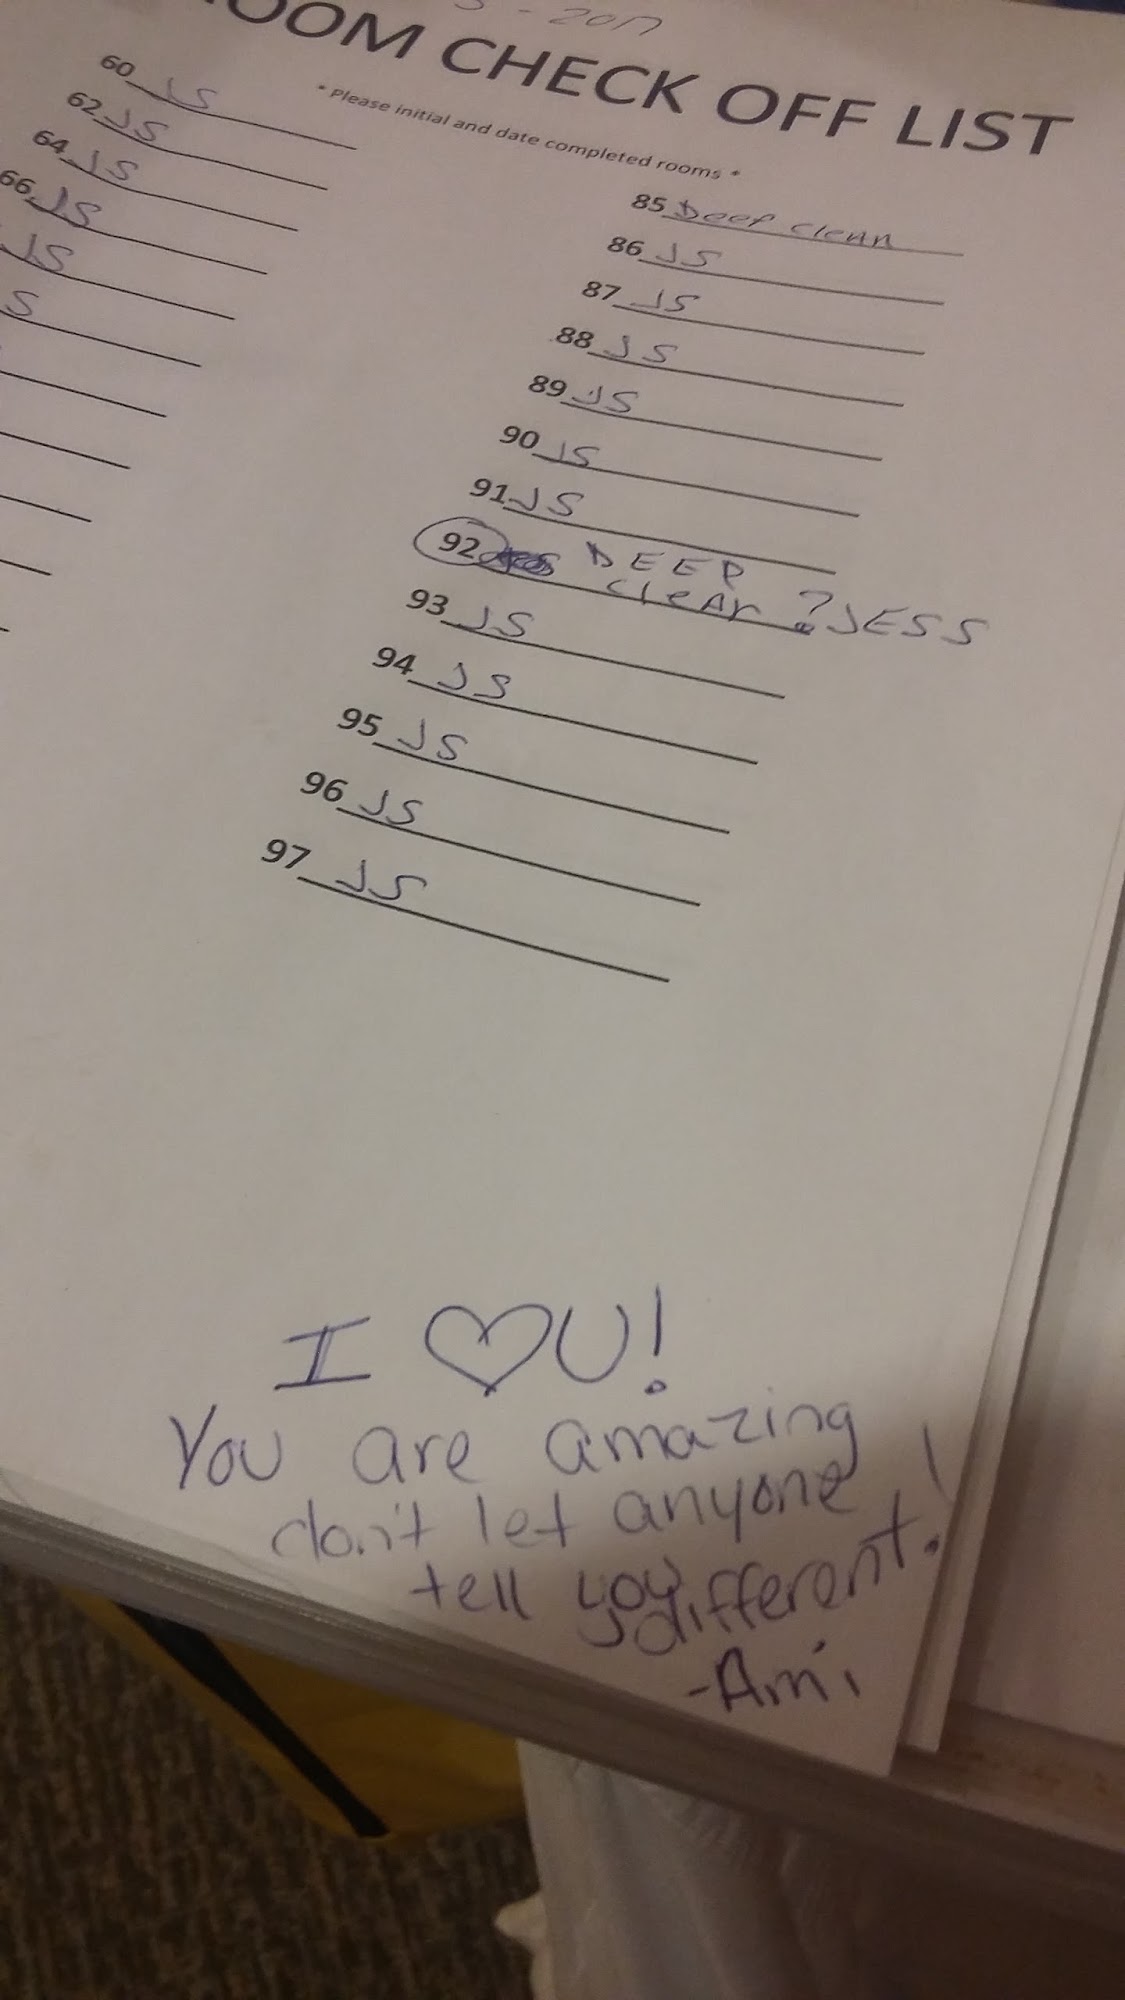 OOM CHECK OFF LIST
* Please initial and date completed rooms *
60 JS
62 JS
64 JS
66 JS
JS
S
85 Deep clean
86 JS
87 JS
88 JS
89 JS
90 JS
91 JS
92 DEEP
clean ? JESS
93 JS
94 JS
95 JS
96 JS
97 JS
I ♡ U!
You are amazing
don't let anyone
tell you different!
-Ami